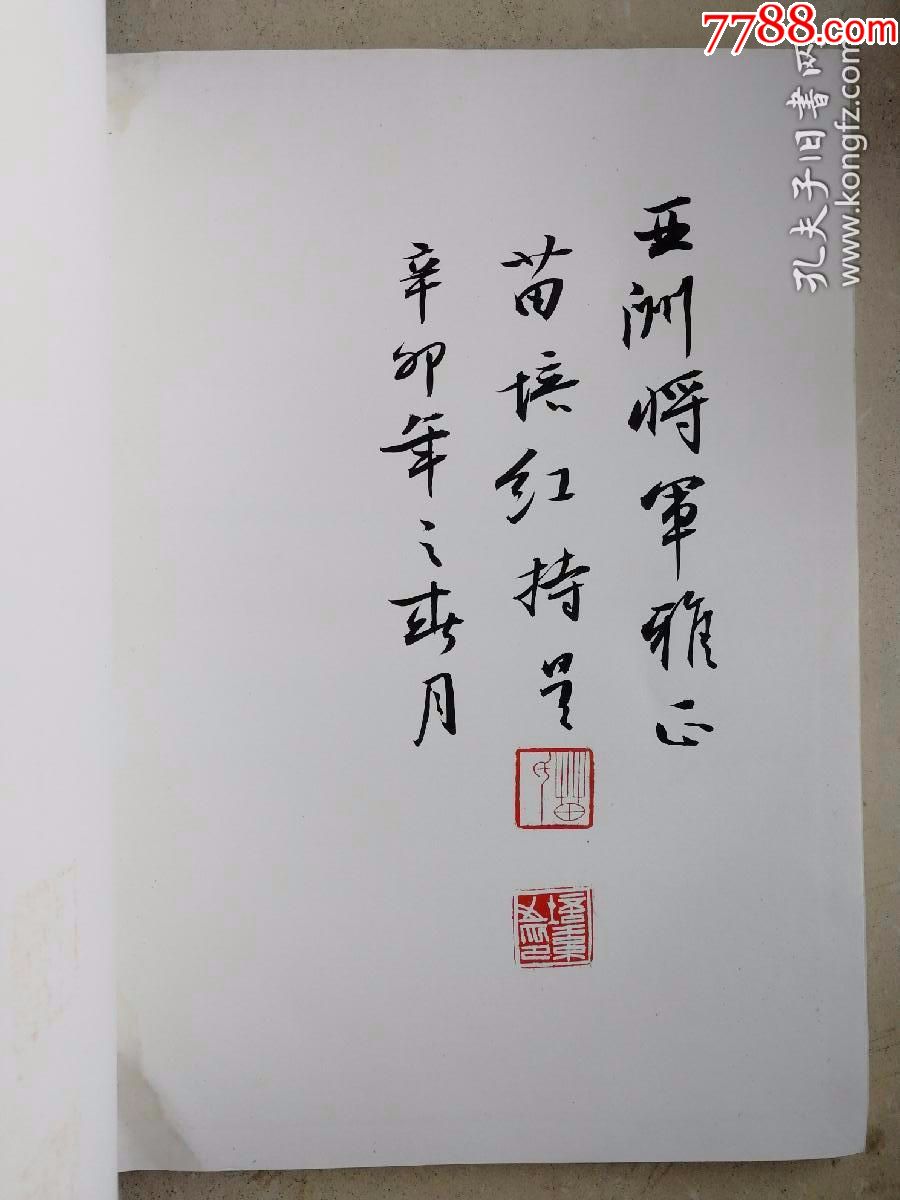 7788.com
孔夫子旧书网
www.kongfz.com
亚洲将军雅正
苗培红持呈
辛卯年之春月
苗氏